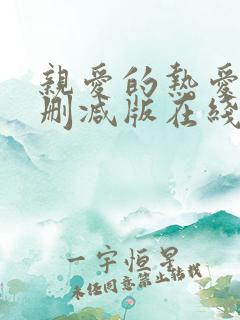 親愛的熱愛
刪減版在綫
一宇恒星
未经同意禁止转载